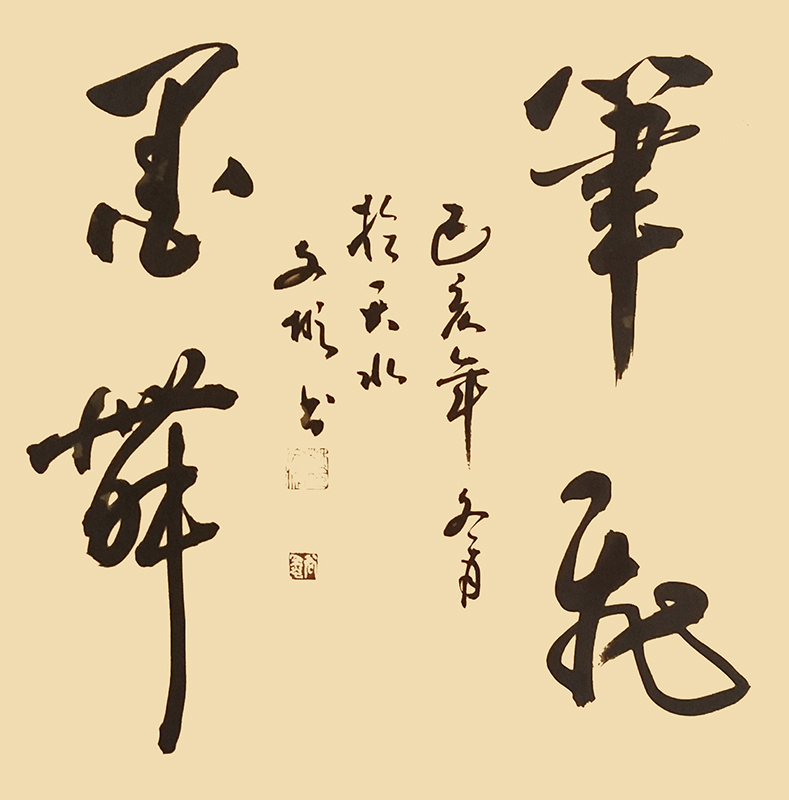 筆飛
墨舞
己亥年冬月
於天水
文 书